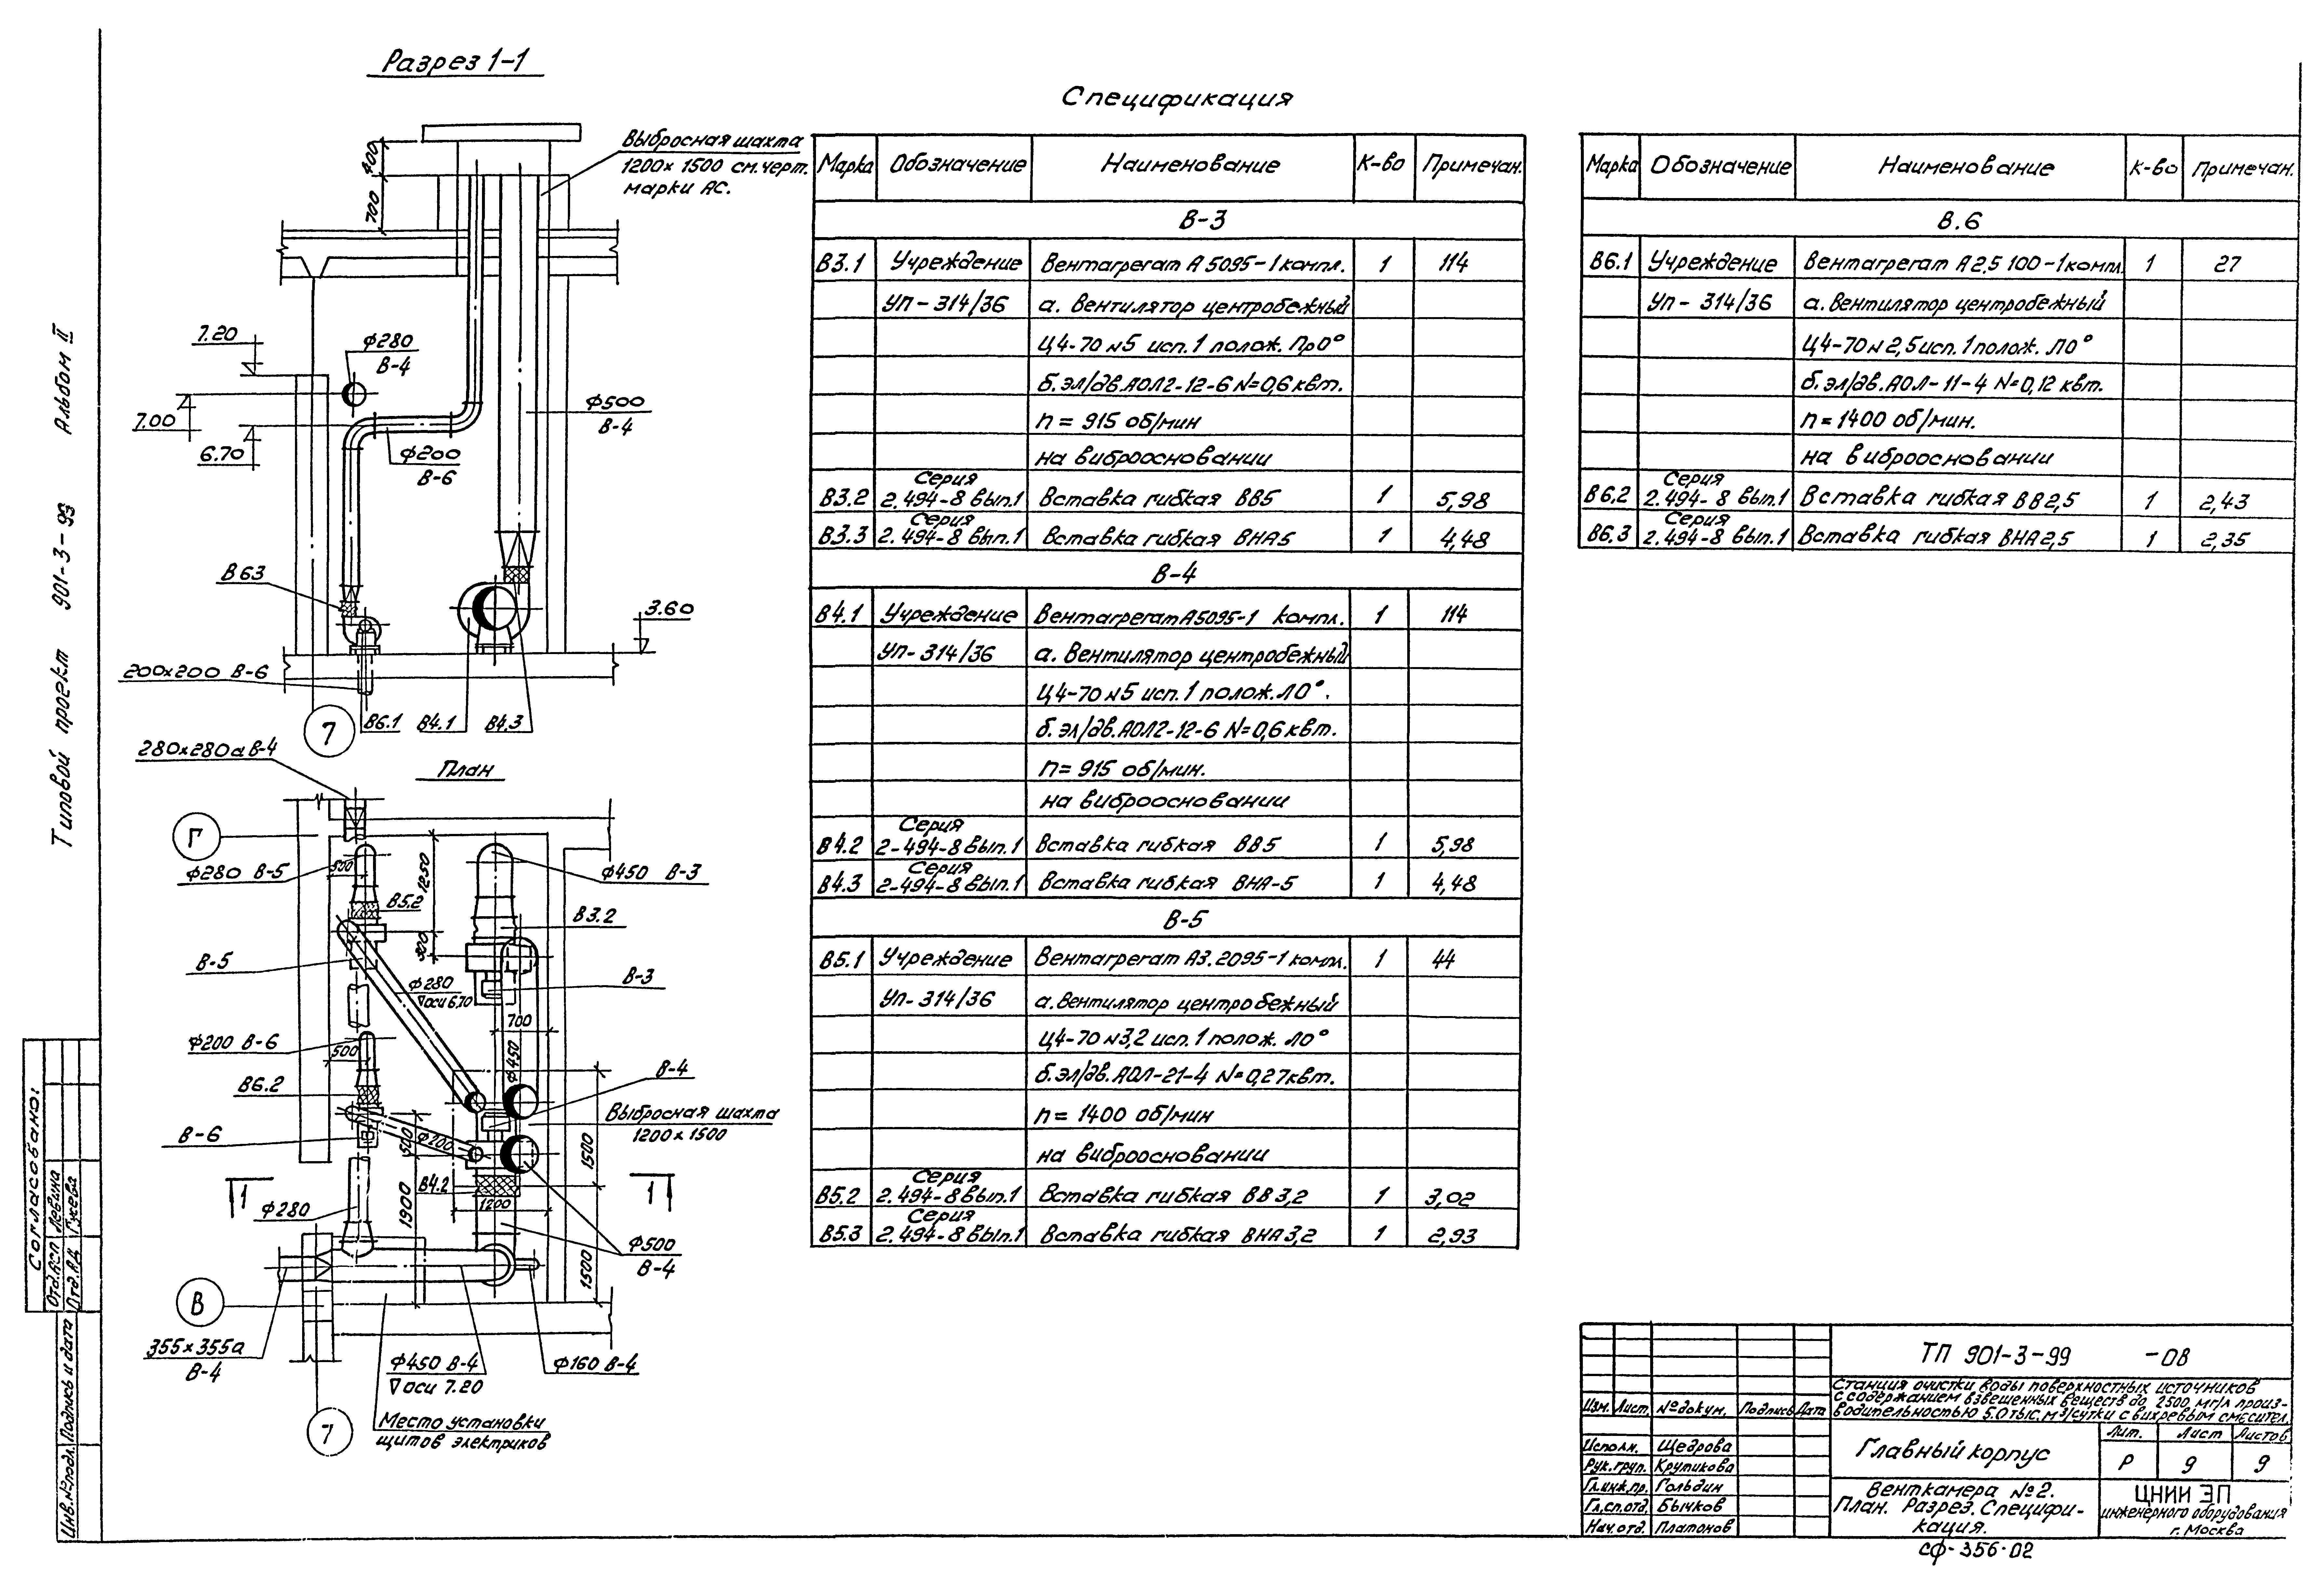 Разрез 1-1
400
700
Выбросная шахта
1200х1500 см.черт.
марки АС.
7.20
ф280
В-4
7.00
6.70
ф200
В-6
ф500
В-4
В63
3.60
200х200 В-6
В6.1
В4.1
В4.3
7
280х280а В-4
План
Г
ф280 В-5
500
1250
ф450 В-3
В5.2
В3.2
300
В-5
ф280
▽оси 6,70
В-3
700
ф200 В-6
500
ф450
В-4
В6.2
Выбросная шахта
1200х1500
В-6
ф200
500
1500
1
В4.2
1
1200
ф280
1900
ф500
В-4
1500
В
355х355а
В-4
ф450 В-4
▽оси 7.20
ф160 В-4
Место установки
щитов электриков
7
Спецификация
Марка Обозначение Наименование К-во Примечан.
В-3
В3.1 Учреждение Вентагрегат А 5095-1 компл. 1 114
УП-314/36 а. Вентилятор центробежный
Ц4-70 №5 исп.1 полож. Пр0°
б.эл/дв.АОЛ2-12-6 N=0,6квт.
n=915 об/мин
на виброосновании
Серия
В3.2 2.494-8 вып.1 Вставка гибкая ВВ5 1 5,98
Серия
В3.3 2.494-8 вып.1 Вставка гибкая ВНА5 1 4,48
В-4
В4.1 Учреждение Вентагрегат А5095-1 компл. 1 114
УП-314/36 а. Вентилятор центробежный
Ц4-70 №5 исп.1 полож. Л0°.
б.эл/дв.АОЛ2-12-6 N=0,6квт.
n=915 об/мин.
на виброосновании
Серия
В4.2 2-494-8 вып.1 Вставка гибкая ВВ5 1 5,98
Серия
В4.3 2-494-8 вып.1 Вставка гибкая ВНА-5 1 4,48
В-5
В5.1 Учреждение Вентагрегат А3.2095-1 компл. 1 44
УП-314/36 а.Вентилятор центробежный
Ц4-70 №3,2 исп.1 полож. Л0°
б.эл/дв.АОЛ-21-4 N=0,27квт.
n=1400 об/мин
на виброосновании
Серия
В5.2 2.494-8 вып.1 Вставка гибкая ВВ3,2 1 3,02
Серия
В5.3 2.494-8 вып.1 Вставка гибкая ВНА3,2 1 2,93
Марка Обозначение Наименование К-во Примечан.
В.6
В6.1 Учреждение Вентагрегат А2,5 100-1компл. 1 27
УП-314/36 а.Вентилятор центробежный
Ц4-70 №2,5 исп.1 полож. Л0°
б.эл/дв.АОЛ-11-4 N=0,12 квт.
n=1400 об/мин.
на виброосновании
Серия
В6.2 2.494-8 вып.1 Вставка гибкая ВВ2,5 1 2,43
Серия
В6.3 2.494-8 вып.1 Вставка гибкая ВНА2,5 1 2,35
Типовой проект 901-3-99 Альбом II
Согласовано:
Отд.ВСП Левина
Отд.АД Гусева
Инв.№подл. Подпись и дата
ТП 901-3-99 -ОВ
Станция очистки воды поверхностных источников
с содержанием взвешенных веществ до 2500 мг/л произ-
водительностью 5.0 тыс.м3/сутки с вихревым смесител.
Изм. Лист. №докум. Подпись Дата
Главный корпус
Лит. Лист Листов
Р 9 9
Исполн. Щедрова
Рук.груп. Крутикова
Гл.инж.пр. Гольдин
Гл.сп.отд. Бычков
Нач.отд. Платонов
Венткамера №2.
План. Разрез. Специфи-
кация.
ЦНИИЭП
инженерного оборудования
г.Москва
сф-356-02